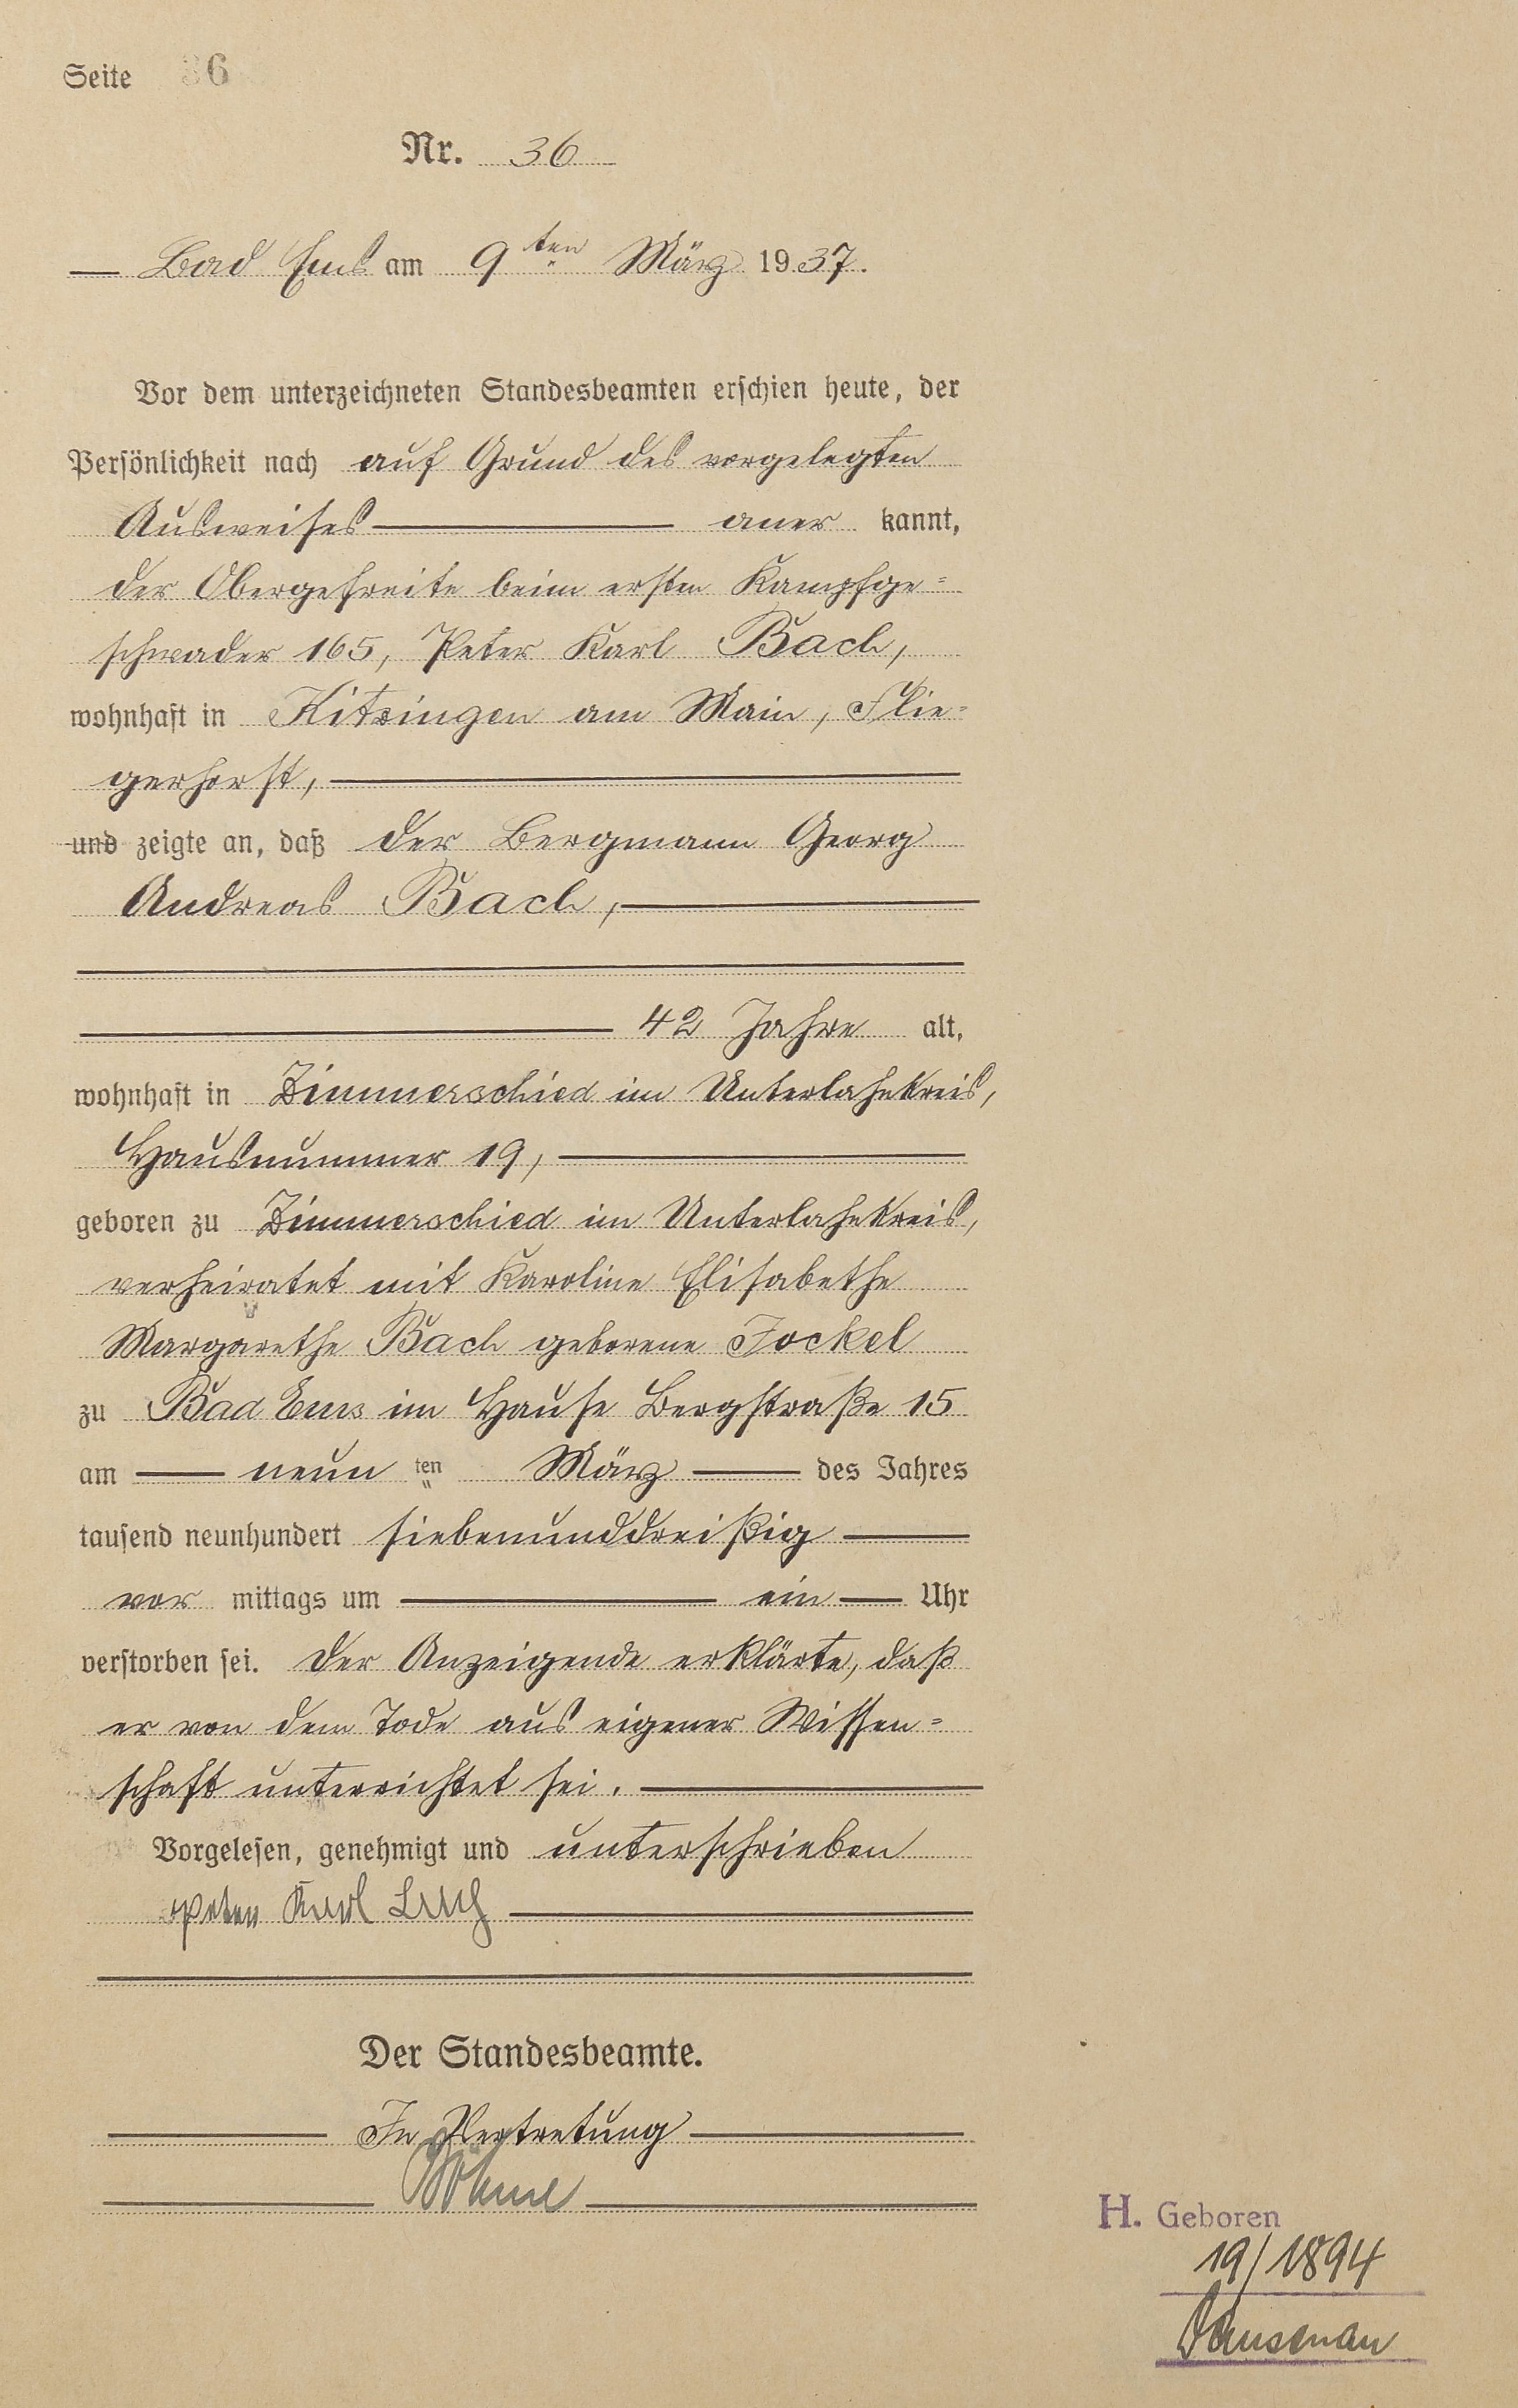 Seite 36
Nr. 36
Bad Ems am 9ten März 1937.
Vor dem unterzeichneten Standesbeamten erschien heute, der
Persönlichkeit nach auf Grund des vorgelegten
Ausweises aner kannt,
der Obergefreite beim ersten Kampfge=
schwader 165, Peter Karl Bach,
wohnhaft in Kitzingen am Main, Flie=
gerhorst,
und zeigte an, daß der Bergmann Georg
Andreas Bach,
42 Jahre alt,
wohnhaft in Zimmerschied im Unterlahnkreis,
Hausnummer 19,
geboren zu Zimmerschied im Unterlahnkreis,
verheiratet mit Karoline Elisabethe
Margarethe Bach geborene Jockel
zu Bad Ems im Hause Bergstraße 15
am neun ten März des Jahres
tausend neunhundert siebenunddreißig
vor mittags um ein Uhr
verstorben sei. Der Anzeigende erklärte, daß
er von dem Tode aus eigener Wissen=
schaft unterrichtet sei.
Vorgelesen, genehmigt und unterschrieben
Peter Karl Bach
Der Standesbeamte.
In Vertretung
Böhme
H. Geboren
19/1894
Dausenau